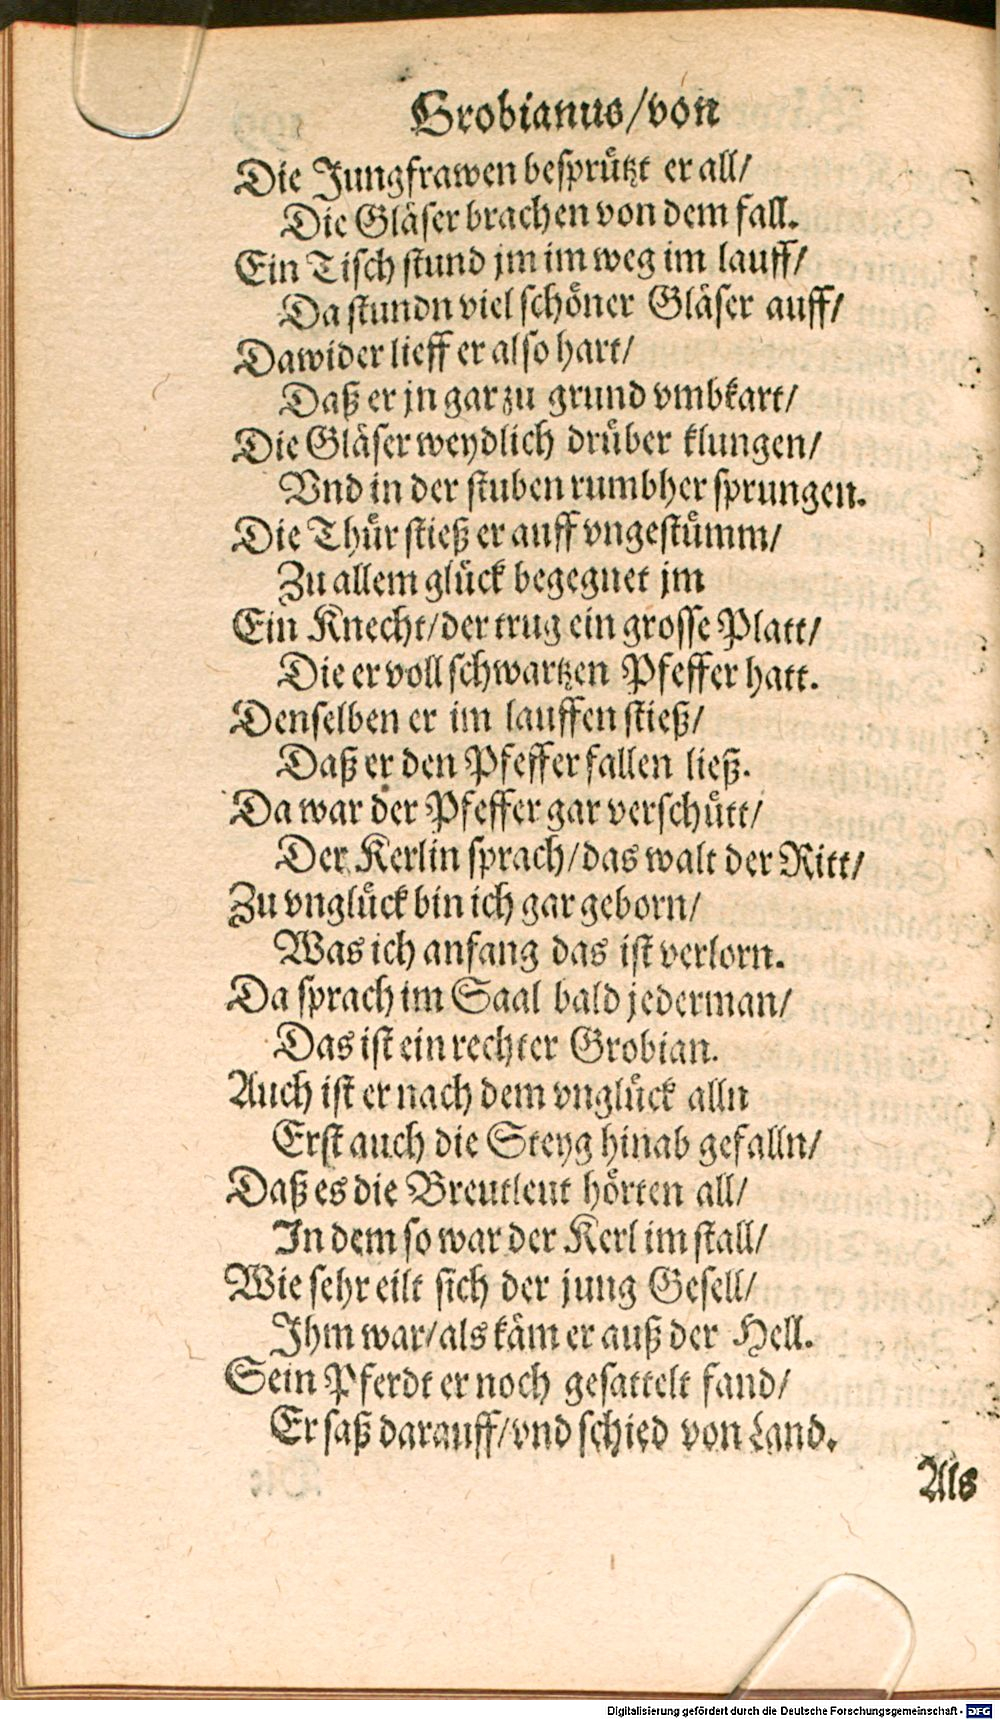 Grobianus/von
Die Jungfrawen besprützt er all/
Die Gläser brachen von dem fall.
Ein Tisch stund jm im weg im lauff/
Da stundn viel schöner Gläser auff/
Dawider lieff er also hart/
Daß er jn gar zu grund vmbkart/
Die Gläser weydlich drüber klungen/
Vnd in der stuben rumbher sprungen.
Die Thür stieß er auff vngestümm/
Zu allem glück begegnet jm
Ein Knecht/der trug ein grosse Platt/
Die er voll schwartzen Pfeffer hatt.
Denselben er im lauffen stieß/
Daß er den Pfeffer fallen ließ.
Da war der Pfeffer gar verschütt/
Der Kerlin sprach/das walt der Ritt/
Zu vnglück bin ich gar geborn/
Was ich anfang das ist verlorn.
Da sprach im Saal bald jederman/
Das ist ein rechter Grobian.
Auch ist er nach dem vnglück alln
Erst auch die Steyg hinab gefalln/
Daß es die Breutleut hörten all/
In dem so war der Kerl im stall/
Wie sehr eilt sich der jung Gesell/
Ihm war/als käm er auß der Hell.
Sein Pferdt er noch gesattelt fand/
Er saß darauff/vnd schied von Land.
Als
Digitalisierung gefördert durch die Deutsche Forschungsgemeinschaft - DFG